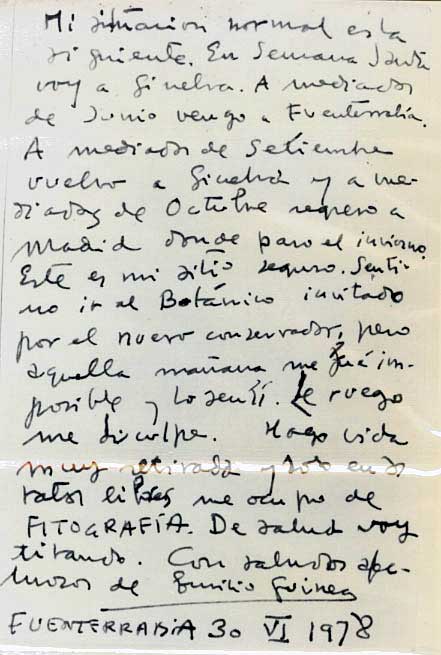 Mi situacion normal es la
siguiente. En Semana Santa
voy a Ginebra. A mediados
de Junio vengo a Fuenterrabía.
A mediados de Setiembre
vuelvo a Ginebra y a me-
diados de Octubre regreso a
Madrid donde paso el invierno.
Este es mi sitio seguro. Sentí
no ir al Botánico invitado
por el nuevo conservador, pero
aquella mañana me fué im-
posible y lo sentí. Le ruego
me disculpe. Hago vida
muy retirada y solo en
ratos libres me ocupo de
FITOGRAFÍA. De salud voy
tirando. Con saludos afec-
tuosos de Emilio Guinea
FUENTERRABIA 30 VI 1978